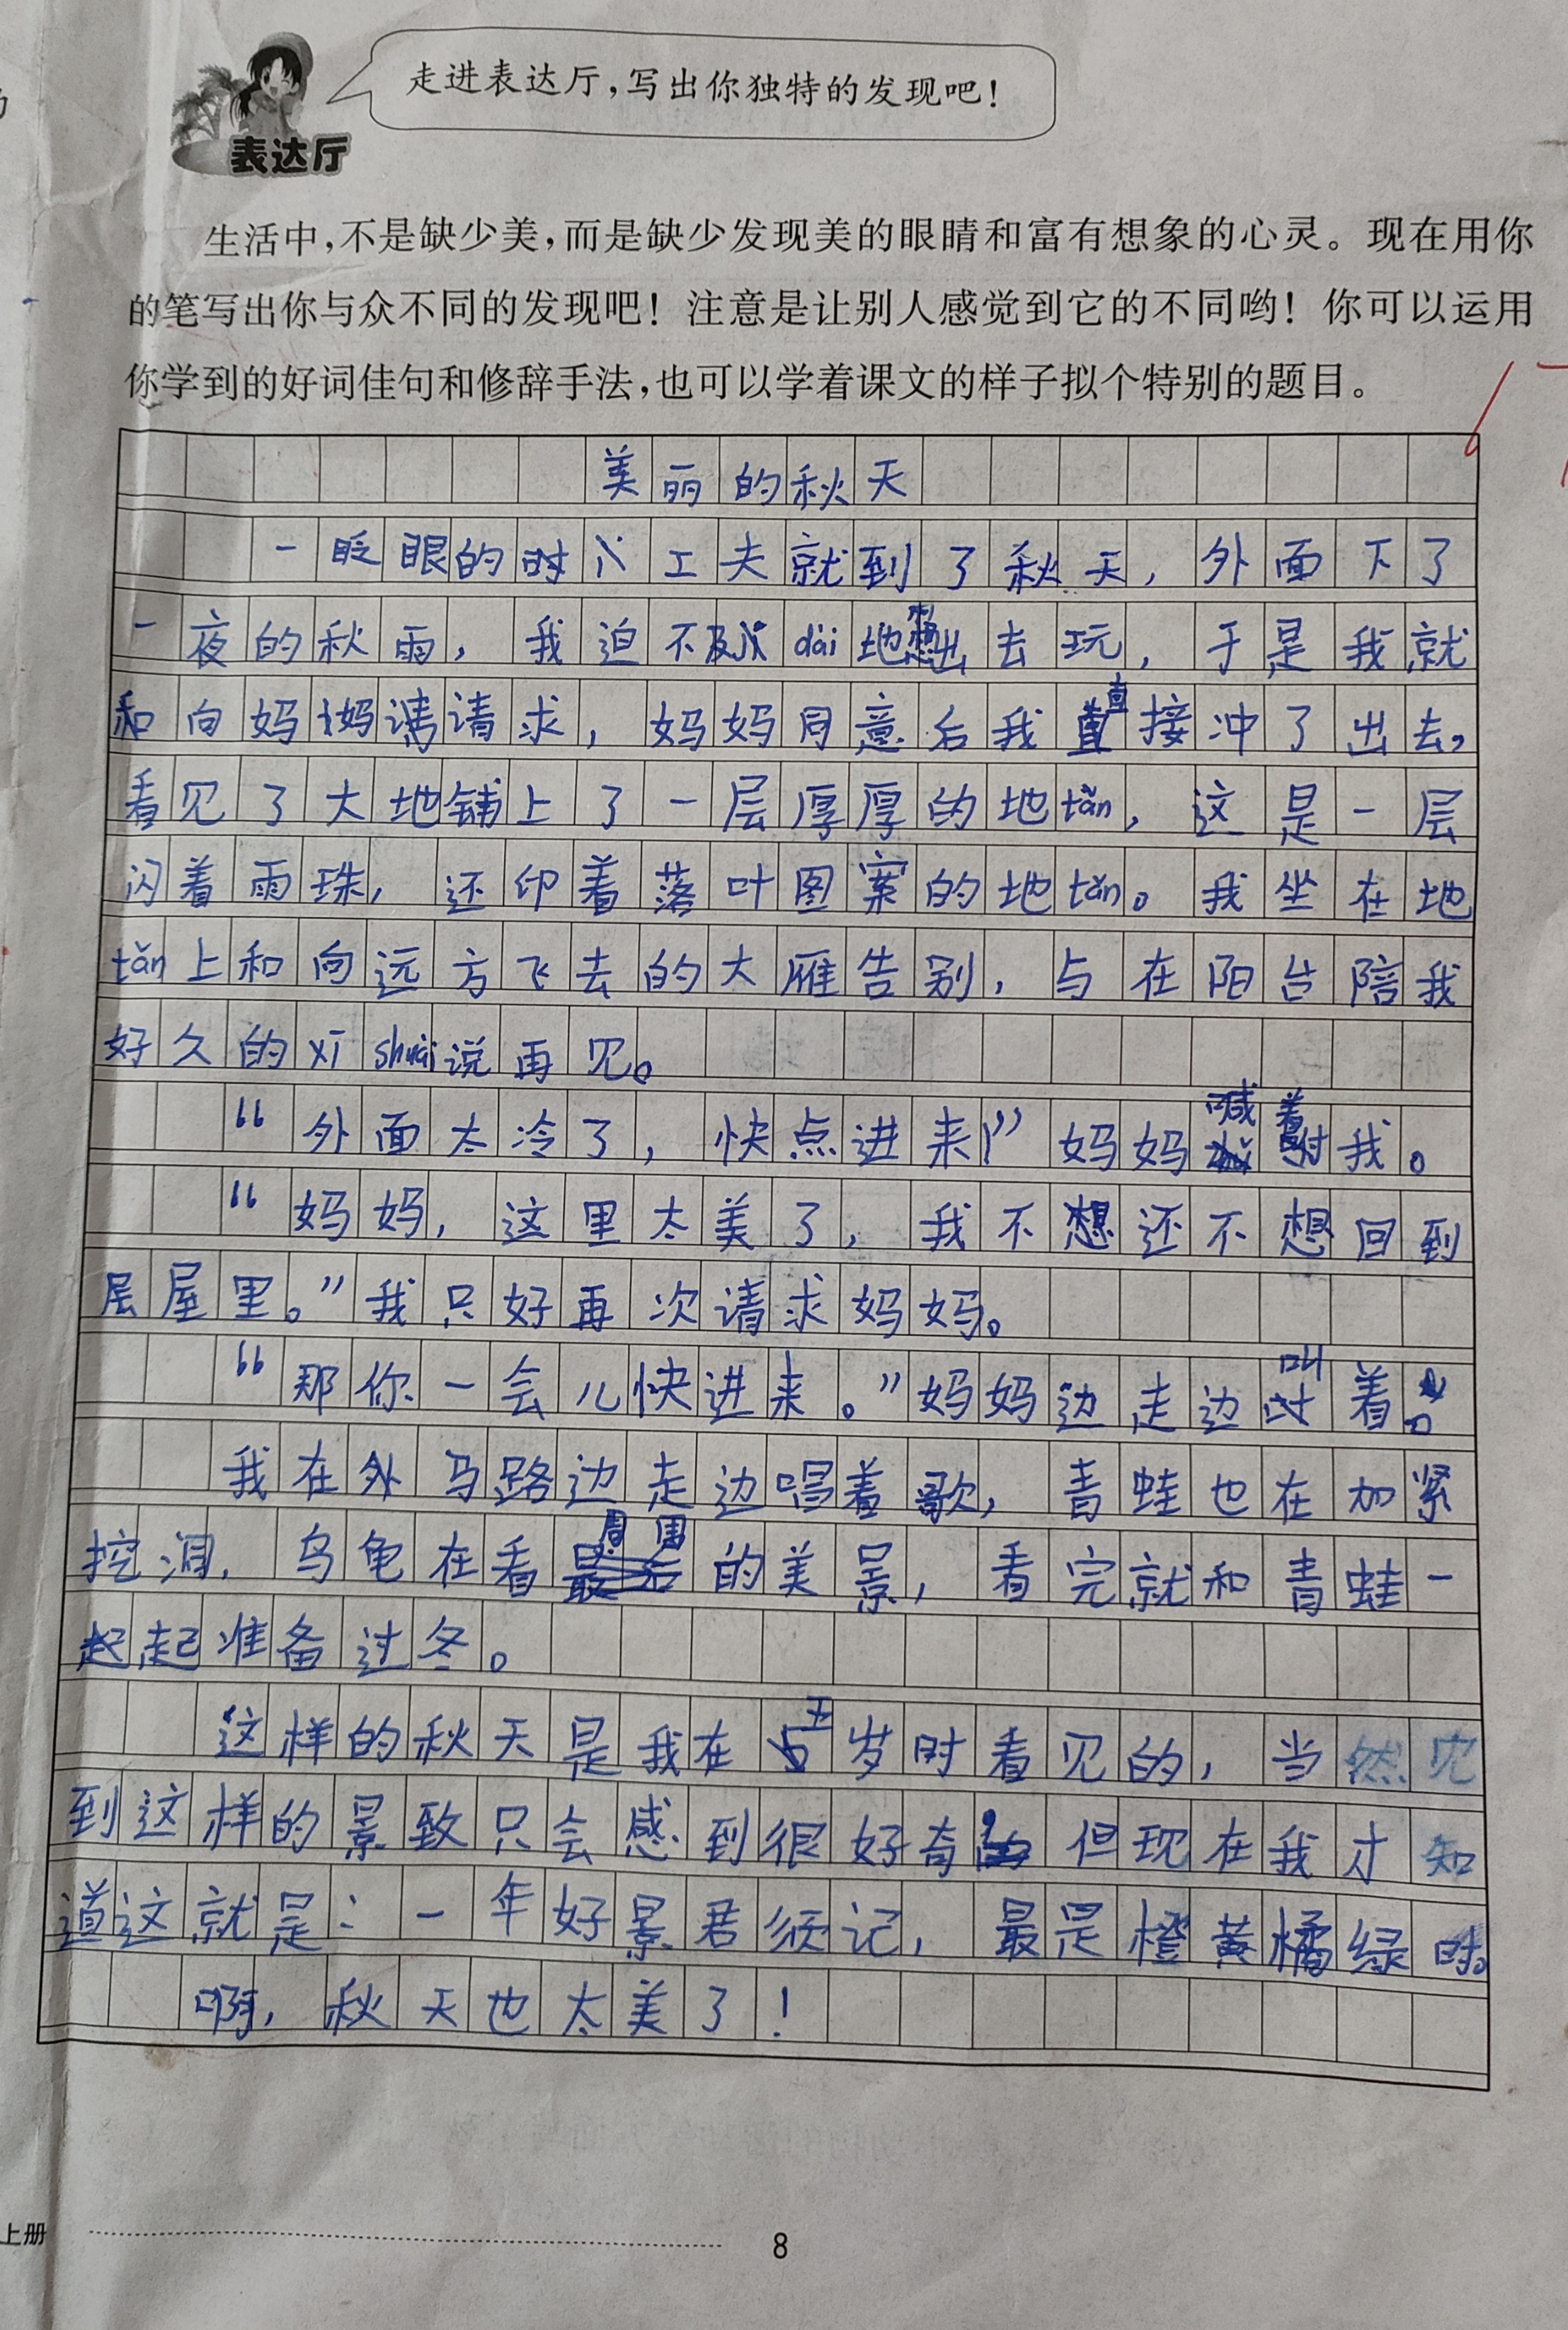 走进表达厅，写出你独特的发现吧！
表达厅
生活中，不是缺少美，而是缺少发现美的眼睛和富有想象的心灵。现在用你
的笔写出你与众不同的发现吧！注意是让别人感觉到它的不同哟！你可以运用
你学到的好词佳句和修辞手法，也可以学着课文的样子拟个特别的题目。
美丽的秋天
一眨眼的时工夫就到了秋天，外面下了
一夜的秋雨，我迫不及dài地想出去玩，于是我就
和向妈妈请求，妈妈同意后我直接冲了出去，
看见了大地铺上了一层厚厚的地tǎn，这是一层
闪着雨珠，还印着落叶图案的地tǎn。我坐在地
tǎn上和向远方飞去的大雁告别，与在阳台陪我
好久的xī shuài说再见。
“外面太冷了，快点进来！”妈妈喊着我。
“妈妈，这里太美了，我不想还不想回到
层屋里。”我只好再次请求妈妈。
“那你一会儿快进来。”妈妈边走边叫着。
我在外马路边走边唱着歌，青蛙也在加紧
挖洞，乌龟在看周围的美景，看完就和青蛙一
起准备过冬。
这样的秋天是我在五岁时看见的，当然见
到这样的景致只会感到很好奇，但现在我才知
道这就是：一年好景君须记，最是橙黄橘绿时。
啊，秋天也太美了！
上册
8